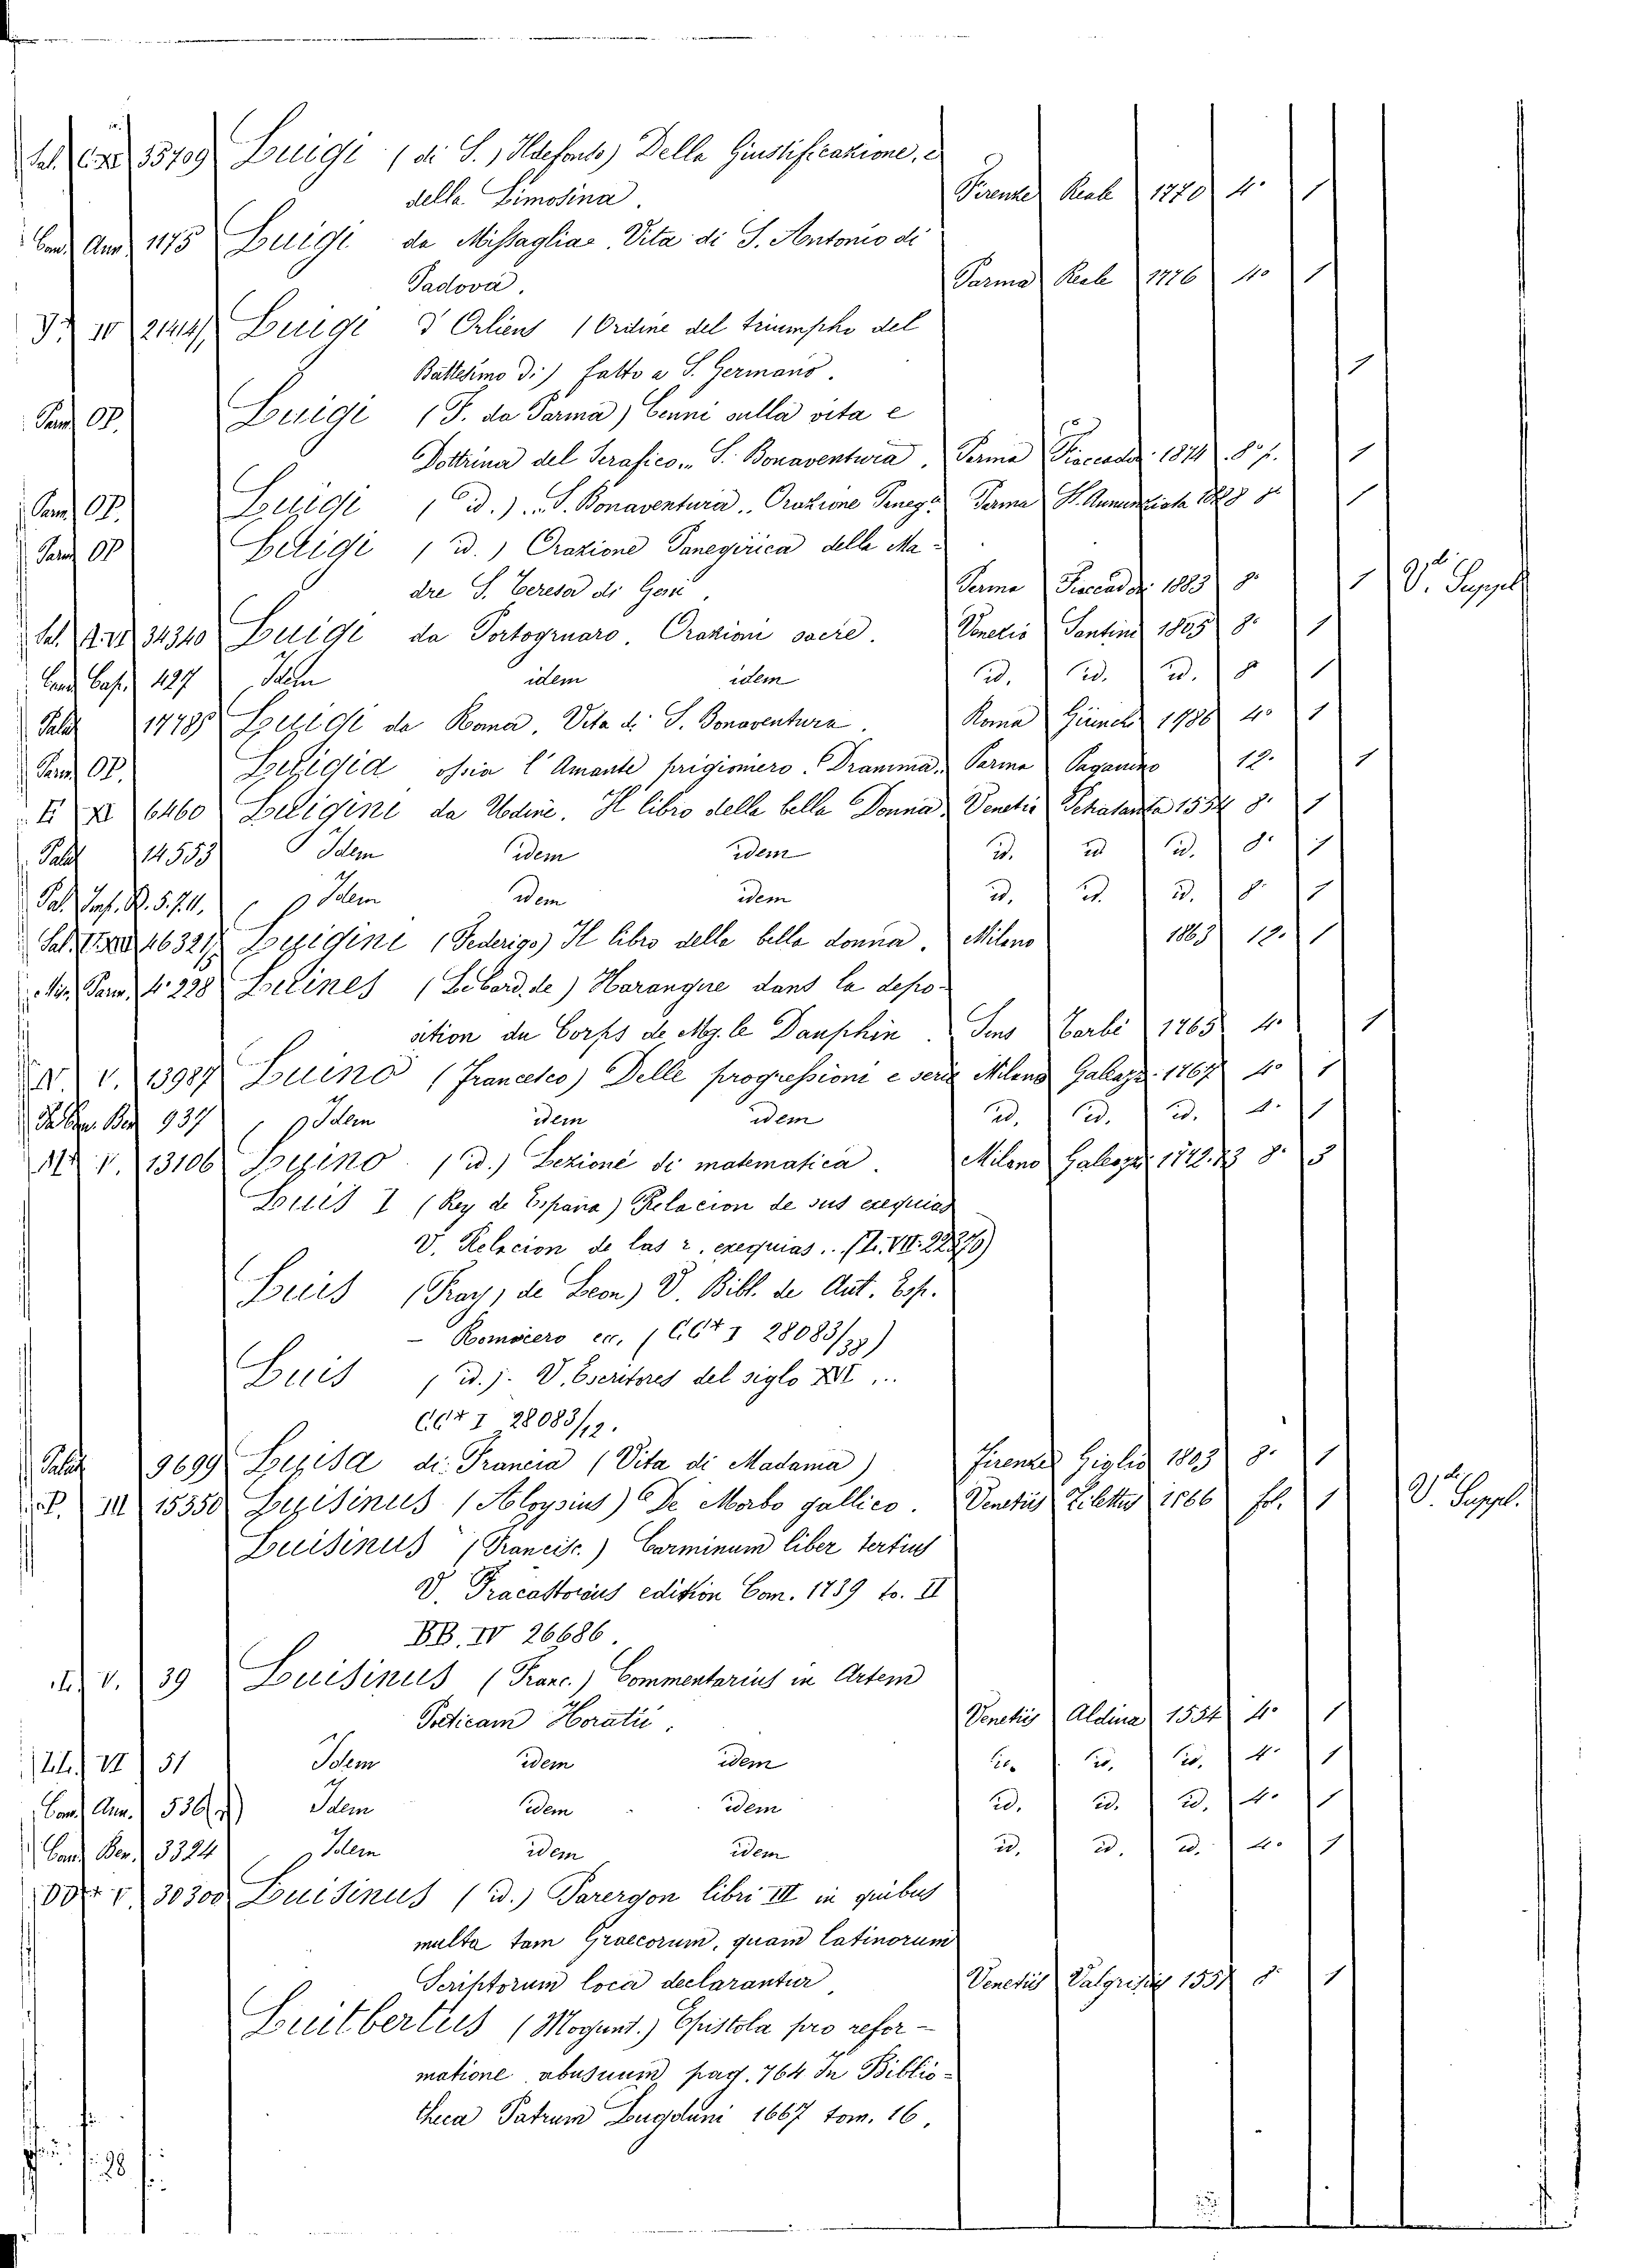 Sal. 35709 Luigi (di S. Ildefonso) Della Giustificazione, e
della Limosina. Firenze Reale 1770 4° 1
Cand. Ann. 1175 Luigi da Missaglia. Vita di S. Antonio di
Padova. Parma Reale 1776 4° 1
IV 21414/ Luigi d'Orliens (Ordine del triumpho del
Battesimo di) fatto a S. Germano. 1
Parm. OP. Luigi (P. da Parma) Cenni sulla vita e
Dottrina del Serafico... S. Bonaventura. Parma Fiaccadori 1874 8° p. 1
Parm. OP. Luigi (id.)... S. Bonaventura... Orazione Paneg. Parma SS. Annunziata 1888 1
Parm. OP Luigi (id.) Orazione Panegirica della Ma-
dre S. Teresa di Gesù. Parma Fiaccadori 1883 8° 1 V. Suppl
Sal. 34340 Luigi da Portogruaro. Orazioni sacre. Venezia Santini 1805 8° 1
Cand. Cas. 427 Idem idem idem id. id. id. 8 1
Palat 14785 Luigi da Roma. Vita di S. Bonaventura. Roma 1786 4° 1
Parm. OP. Luigia ossia l'Amante prigioniero. Dramma. Parma Paganino 12. 1
E XI 6460 Luigini da Udine. Il libro della bella Donna. Venetia 1554 8. 1
Palat 14553 Idem idem idem id. id id. 8. 1
Pal. Inf. R. 5.7.11. Idem idem idem id. id. id. 8. 1
Sal. 16321/ Luigini (Federigo) Il libro della bella donna. Milano 1863 12. 1
Mis. Parm. 4° 228 Luines (Lebard. de) Harangue dans la depo-
15
sition du Corps de Mg. le Dauphin. Sens Tarbé 1765 4. 1
N. V. 13987 Luino (Francesco) Delle progressioni e serie Milano Galeazzi 1767 4° 1
937 Idem idem idem id. id. id. 4. 1
V. 13106 Luino (id.) Lezioni di matematica. Milano Galeazzi 1772.73 8. 3
Luis I (Rey de España) Relacion de sus exequias
V. Relacion de las r. exequias.. (L. VII. 22376)
Luis (Fray, de Leon) V. Bibl. de Aut. Esp.
- Romacero ec. (CC++ I 28083/38)
Luis (id.). V. Escritores del siglo XVI...
CC++ I 28083/12.
Palat 9699 Luisa di Francia (Vita di Madama) Firenze Giglio 1803 8. 1
P. III 15350 Luisinus (Aloysius) De Morbo gallico. Venetiis Zilettus 1566 fol. 1 V. Suppl.
Luisinus (Francisc.) Carminum liber tertius
V. Fracastorius edition Com. 1739 to. II
BB. IV 26686.
V. 39 Luisinus (Franc.) Commentarius in Artem
Poeticam Horatii. Venetiis Aldina 1554 4° 1
VI 51 Idem idem idem id. id. id. 4. 1
Cand. Ann. 536 Idem idem idem id. id. id. 4. 1
Cand. Ber. 3324 Idem idem idem id. id. id. 4. 1
V. 30300 Luisinus (id.) Parergon libri III in quibus
multa tam Graecorum, quam Latinorum
Scriptorum loca declarantur. Venetiis Valgrisius 1551 8. 1
Luitbertus (Mogunt.) Epistola pro refor-
matione abusuum pag. 764 In Biblio-
theca Patrum Lugduni 1667 tom. 16.
28